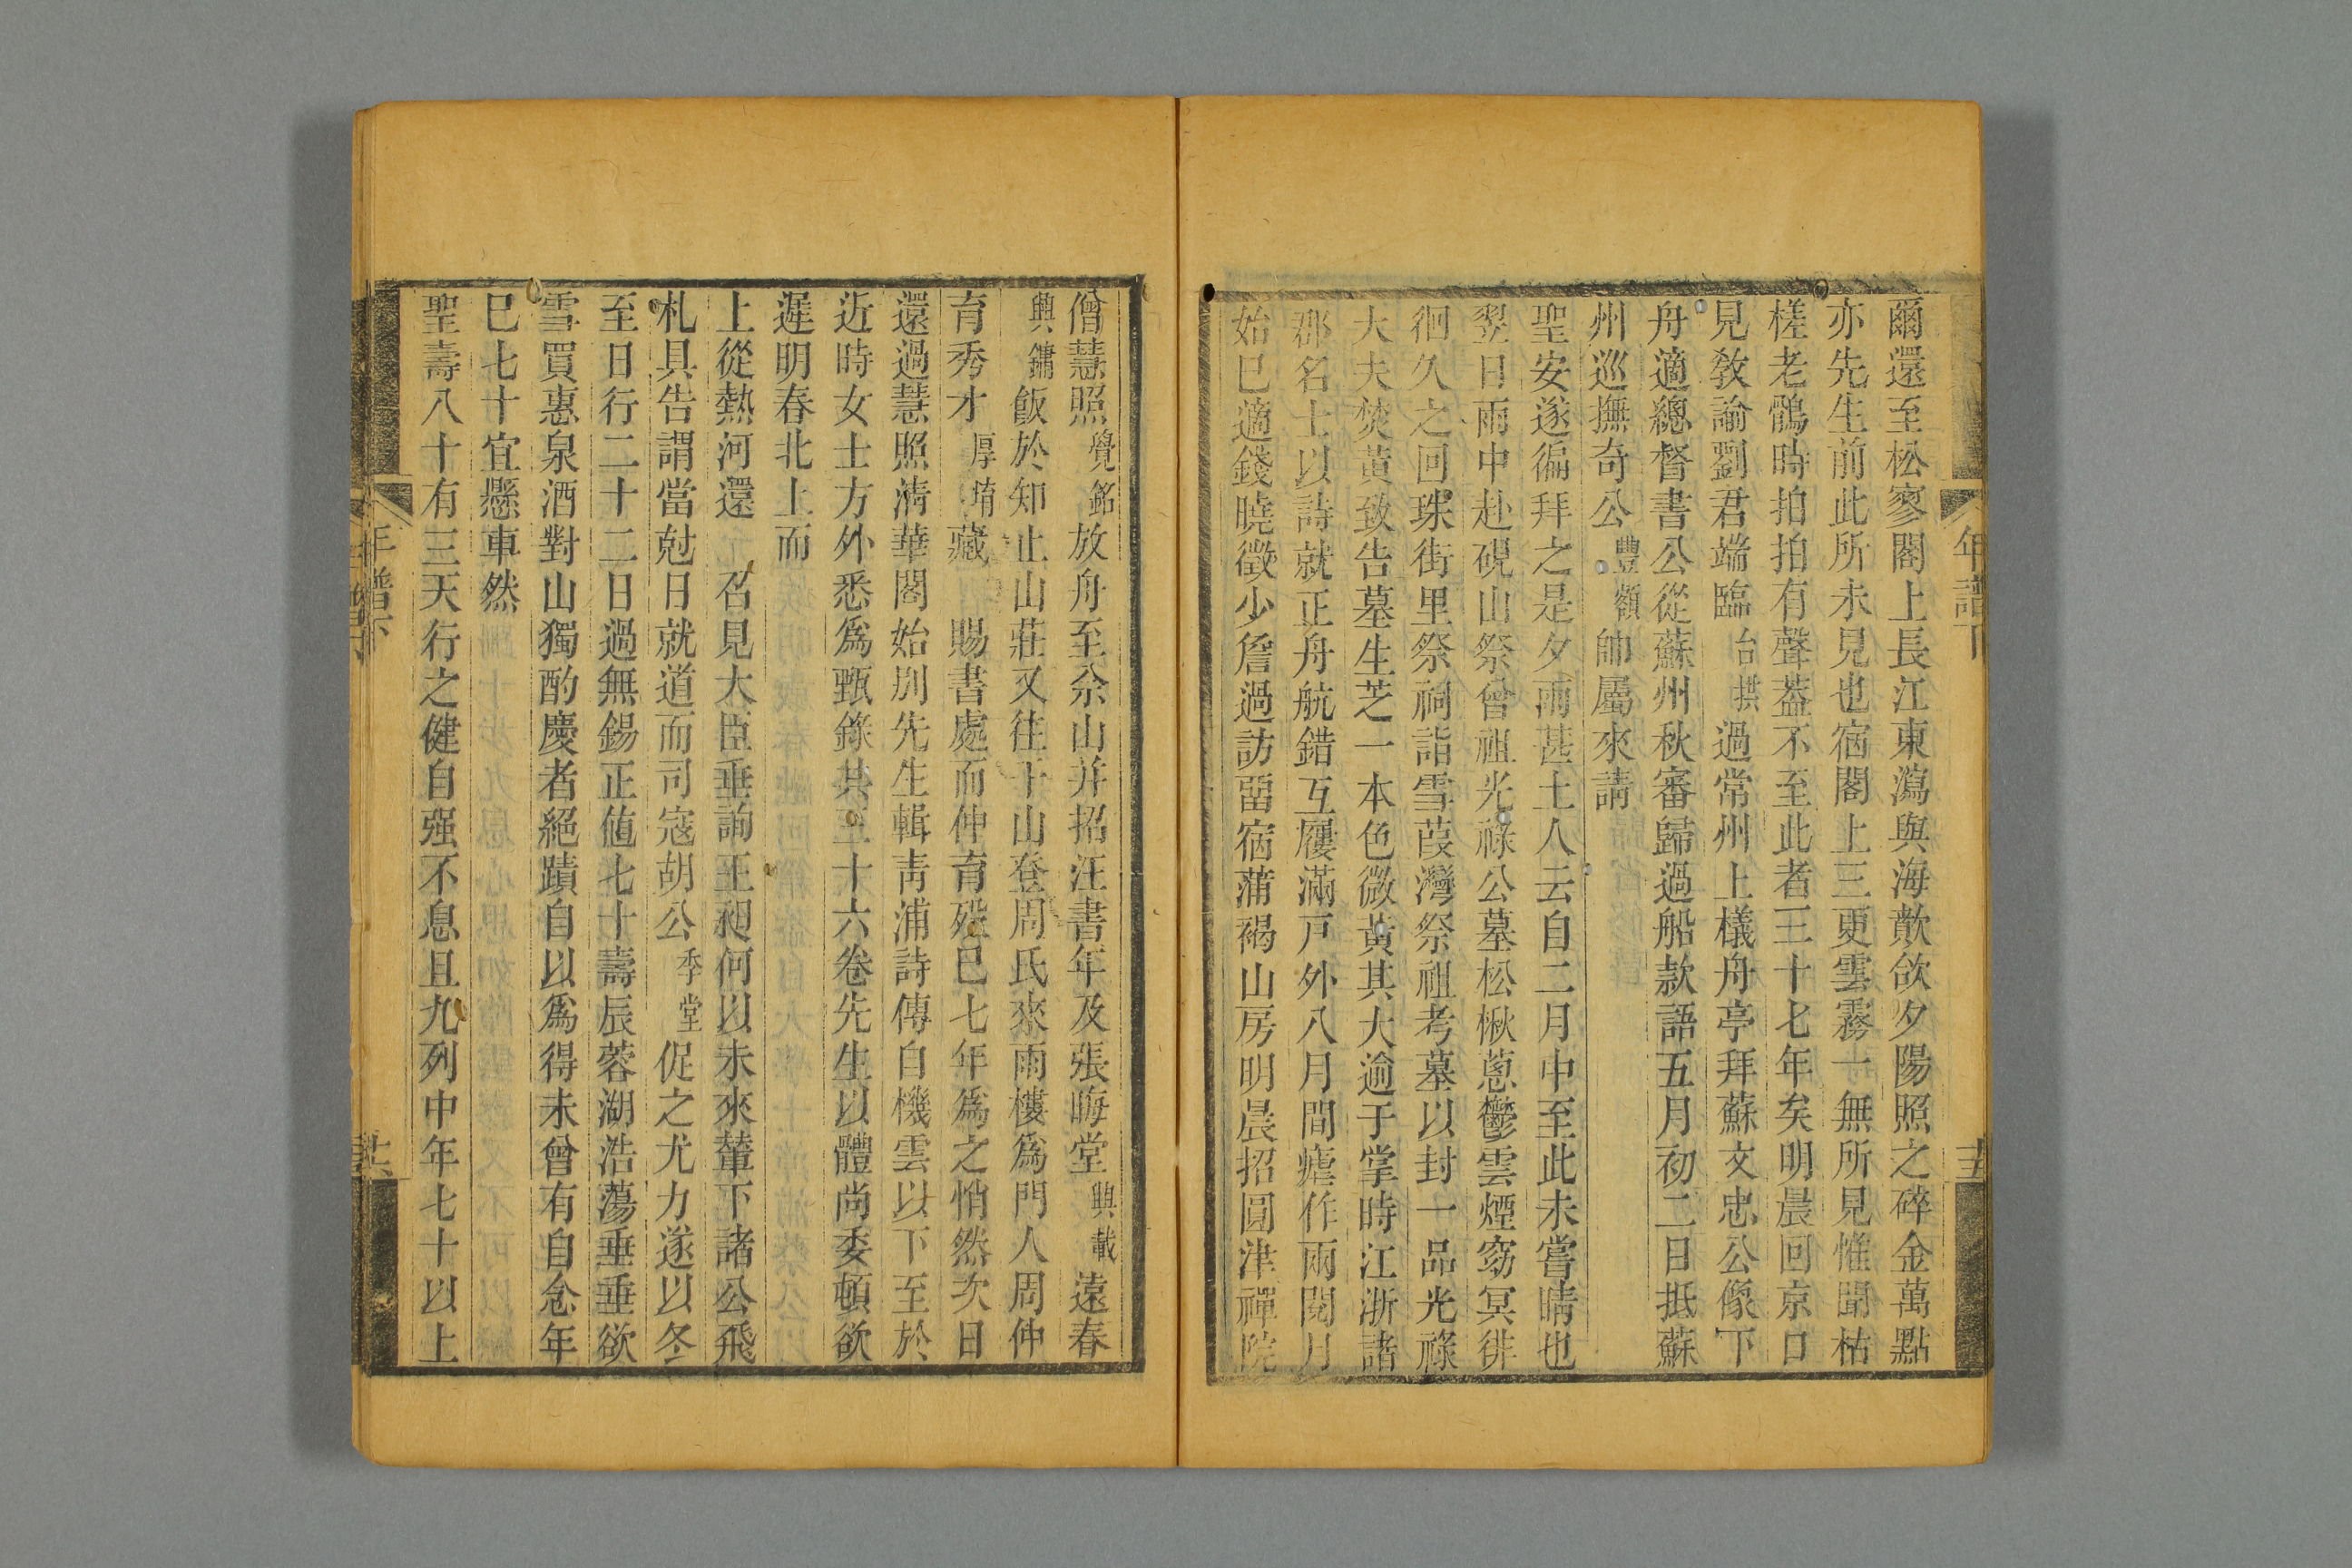 年譜下
爾還至松寥閣上長江東瀉與海歕欱夕陽照之碎金萬點
亦先生前此所未見也宿閣上三更雲霧一無所見惟聞枯
槎老鶻時拍拍有聲葢不至此者三十七年矣明晨回京口
見敎諭劉君端臨台拱過常州上檥舟亭拜蘇文忠公像下
舟適總督書公從蘇州秋審歸過船款語五月初二日抵蘇
州巡撫奇公豐額帥屬來請
聖安遂徧拜之是夕雨甚土人云自二月中至此未嘗晴也
翌日雨中赴硯山祭曾祖光祿公墓松楸蔥鬱雲煙窈冥徘
徊久之回珠街里祭祠詣雪葭灣祭祖考墓以封一品光祿
大夫焚黃致告墓生芝一本色微黃其大逾于掌時江浙諸
郡名士以詩就正舟航錯互屨滿戸外八月間瘧作兩閱月
始已適錢曉徵少詹過訪畱宿蒲褐山房明晨招圓津禪院
僧慧照覺銘放舟至佘山并招汪書年及張晦堂興載遠春
興鏞飯於知止山莊又往干山登周氏來雨樓爲門人周仲
育秀才厚堉藏 賜書處而仲育殁已七年爲之悄然次日
還過慧照淸華閣始刋先生輯靑浦詩傳自機雲以下至於
近時女士方外悉爲甄錄共三十六卷先生以體尚委頓欲
遲明春北上而
上從熱河還 召見大臣垂詢王昶何以未來輦下諸公飛
札具告謂當尅日就道而司寇胡公季堂促之尤力遂以冬
至日行二十二日過無錫正值七十壽辰蓉湖浩蕩垂垂欲
雪買惠泉酒對山獨酌慶者絕蹟自以爲得未曾有自念年
已七十宜懸車然
聖壽八十有三天行之健自强不息且九列中年七十以上
年譜下